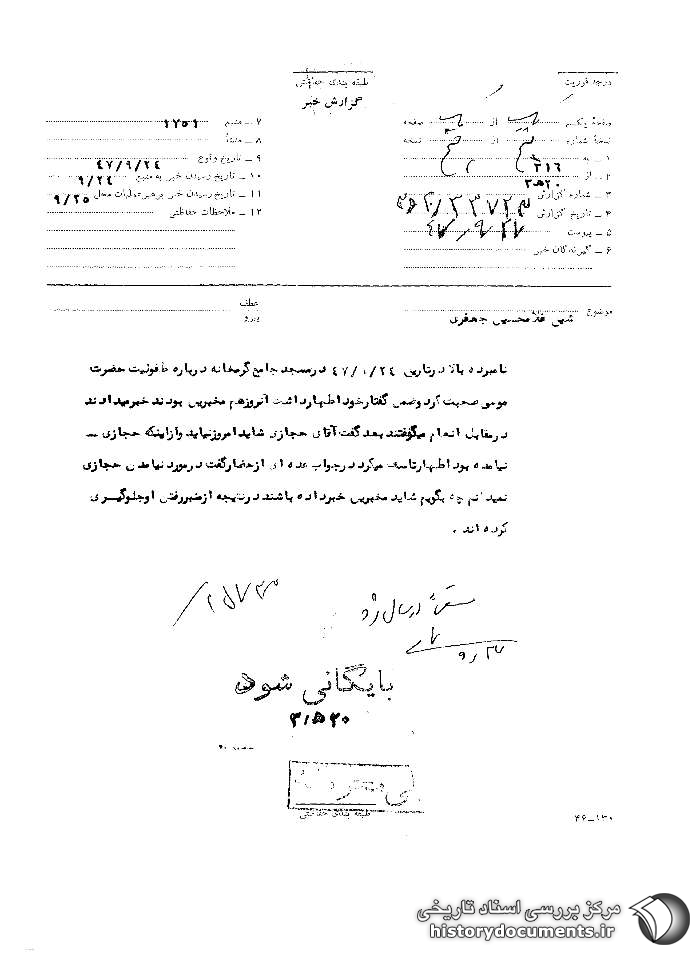 درجه فوریت
طبقه بندی حفاظتی
گزارش خبر
صفحهٔ یکم از صفحه
نسخهٔ شماره از نسخه
۱ ــ به ۳۱۶
۲ ــ از ۳ ﻫ ۲۰
۳ ــ شماره گزارش
۴ ــ تاریخ گزارش
۵ ــ پیوست
۶ ــ گیرندگان خبر
۷ ــ منبع ۱۷۵۹
۸ ــ منشأ
۹ ــ تاریخ وقوع ۴۷/۹/۲۴
۱۰ ــ تاریخ رسیدن خبر به منبع ۹/۲۴
۱۱ ــ تاریخ رسیدن خبر برهبر عملیات محل ۹/۲۵
۱۲ ــ ملاحظات حفاظتی
موضوع شیخ غلامحسین جعفری
عطف
پیرو
نامبرده بالا در تاریخ ۴۷/۹/۲۴ در مسجد جامع گرمخانه درباره طفولیت حضرت
موسی صحبت کرد و ضمن گفتار خود اظهار داشت آنروزهم مخبرین بودند خبر میدادند
در مقابل انعام میگرفتند بعد گفت آقای حجازی شاید امروز نیاید و از اینکه حجازی ــ
نیامده بود اظهار تاسف میکرد در جواب عده ای از حضار گفت در مورد نیامدن حجازی
نمیدانم چه بگویم شاید مخبرین خبر داده باشند در نتیجه از منبر رفتن او جلوگیری
کرده اند .
ارسال شد
۹/۲۷
بایگانی شود
۳ ﻫ ۲۰
طبقه بندی حفاظتی
۴۶ــ۱۳۰
مرکز بررسی اسناد تاریخی
historydocuments.ir